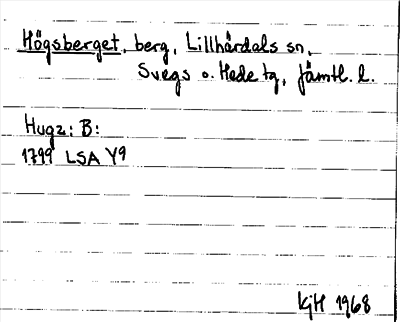 Högsberget, berg, Lillhärdals sn,
Svegs o. Hede tg, Jämtl. l.
Hugz: B:
1799 LSA Y9
KjH 1968